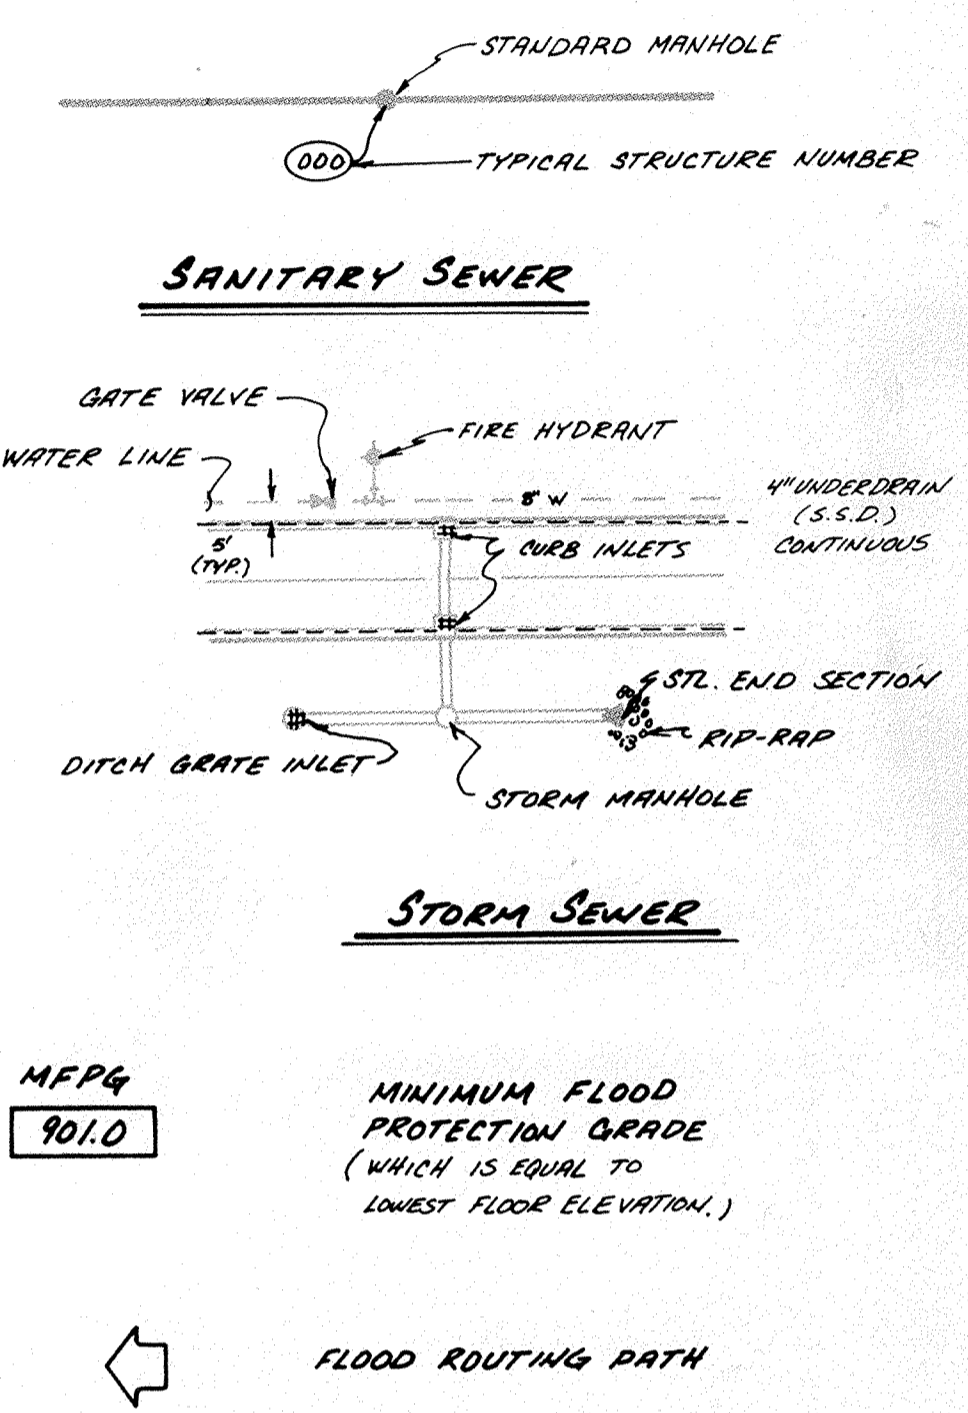 STANDARD MANHOLE
000
TYPICAL STRUCTURE NUMBER
SANITARY SEWER
GATE VALVE
FIRE HYDRANT
WATER LINE
8" W
4" UNDERDRAIN
(S.S.D.)
CONTINUOUS
5'
(TYP.)
CURB INLETS
STL. END SECTION
RIP-RAP
DITCH GRATE INLET
STORM MANHOLE
STORM SEWER
MFPG
901.0
MINIMUM FLOOD
PROTECTION GRADE
(WHICH IS EQUAL TO
LOWEST FLOOR ELEVATION.)
FLOOD ROUTING PATH